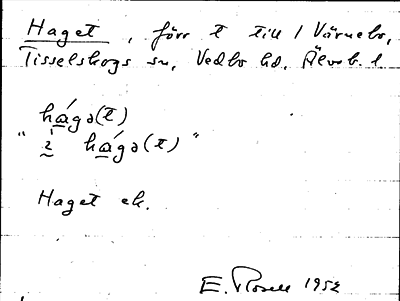 Haget, förr t till 1 Värnebo,
Tisselskogs sn, Vedbo hd. Älvsb. l.
hágə(t)
"i hágə(t)"
Haget ek.
E. Rosell 1952